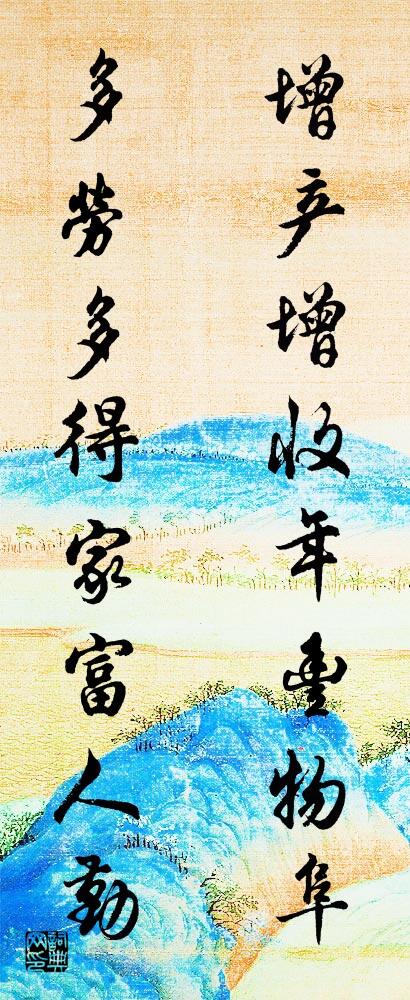 增产增收年豊物阜
多勞多得家富人勤